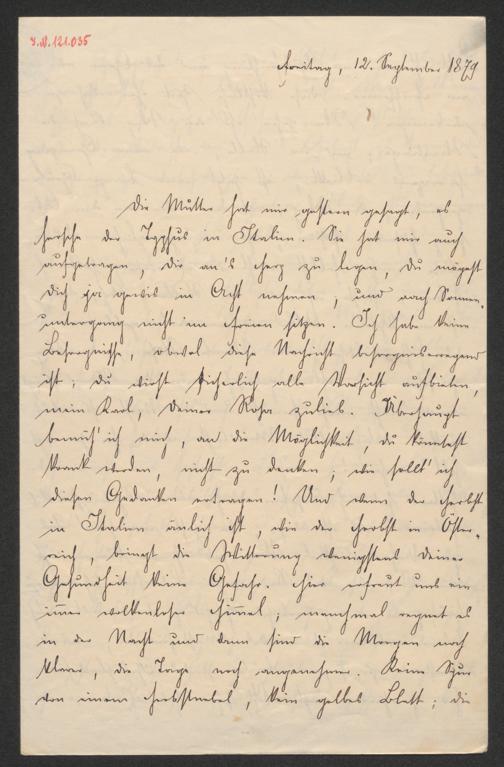 I.N. 121.035
Freitag, 12. September 1879
Die Mutter hat mir gestern gesagt, es
hersche der Typhus in Italien. Sie hat mir auch
aufgetragen, dir an's Herz zu legen, du mögest
dich ja gewis in Acht nehmen, und nach Sonnen-
untergang nicht im Freien sitzen. Ich habe keine
Besorgnisse, obwol diese Nachricht besorgniserregend
ist; du wirst sicherlich alle Vorsicht aufbieten,
mein Karl, deiner Rosa zulieb. Überhaupt
bemüh' ich mich, an die Möglichkeit, du könntest
krank werden, nicht zu denken; wie sollt' ich
diesen Gedanken ertragen! Und wenn der Herbst
in Italien änlich ist, wie der Herbst in Öster-
reich, bringt die Witterung wenigstens deiner
Gesundheit keine Gefahr. Hier erfreut uns ein
immer wolkenloser Himmel; manchmal regnet es
in der Nacht und dann sind die Morgen noch
klarer, die Tage noch angenehmer. Keine Spur
von einem Herbstnebel, kein gelbes Blatt; die